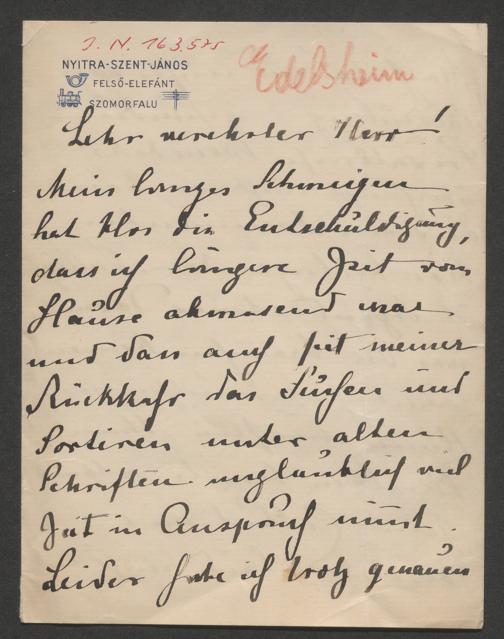 J. N. 163.575
Edelsheim
NYITRA-SZENT-JÁNOS
FELSŐ-ELEFÁNT
SZOMORFALU
Sehr verehrter Herr!
Mein langes Schweigen
hat blos die Entschuldigung,
dass ich längere Zeit vom
Hause abwesend war
und dass auch seit meiner
Rückkehr das Suchen und
Sortiren unter alten
Schriften unglaublich viel
Zeit in Anspruch nimt.
Leider habe ich trotz genauen